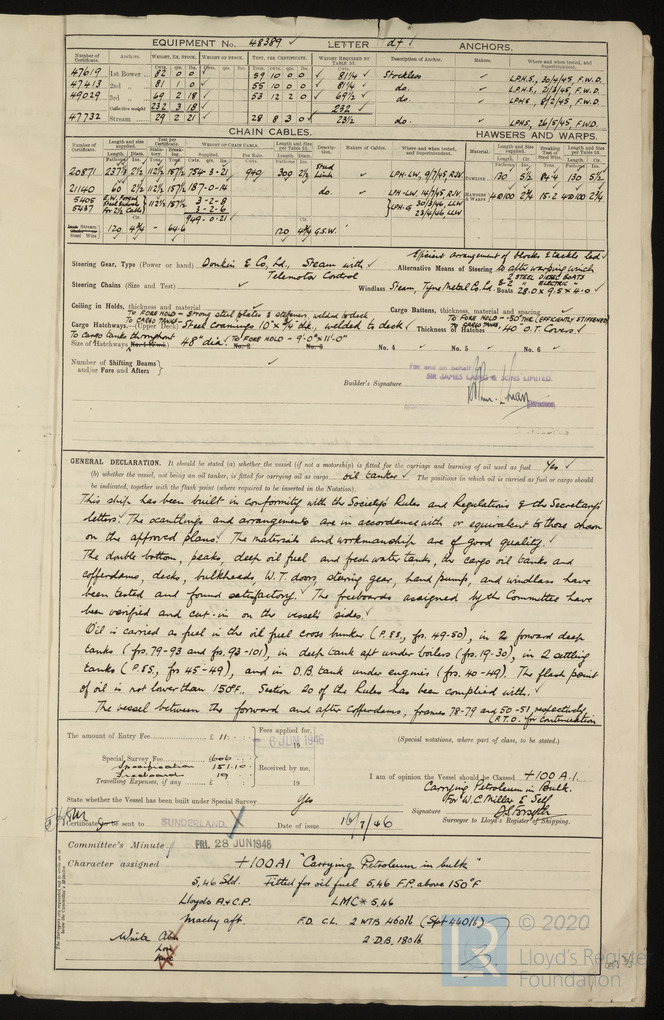 EQUIPMENT No. 48389 LETTER d† ANCHORS.
Number of Certificate. Anchors. WEIGHT, EX. STOCK. WEIGHT OF STOCK. TEST, PER CERTIFICATE. WEIGHT REQUIRED BY TABLE 53. Description of Anchor. Makers. Where and when tested, and Superintendent.
47619 1st Bower 82 0 0 59 10 0 0 81¼ Stockless LPH.S, 30/4/45, F.W.D.
47413 2nd 81 1 0 55 10 0 0 81¼ do. LPH.S, 21/3/45, F.W.D.
49029 3rd 69 2 18 53 12 2 0 69½ do. LPH.S, 8/2/45, F.W.D.
Collective weight 232 3 18 232
47732 Stream 29 2 21 28 8 3 0 23½ do. LPHS, 26/5/45, F.W.D.
CHAIN CABLES. HAWSERS AND WARPS.
Number of Certificate. Length and size supplied. Test per Certificate. WEIGHT OF CHAIN CABLE. Length and size per Table 53. Description. Makers of Cables. Where and when tested, and Superintendent. Material. Length and size supplied. Breaking Test of Steel Wire. Length and size per Table 53.
20871 237½ 2½ 112½ 157½ 754-3-21 949 309 2½ Stud Link LPH-LW, 9/7/45, R.J.V. TOWLINE 130 5½ 84.4 130 5½
21140 60 2½ 112½ 157½ 187-0-14 do. LPH-LW, 14/7/45, R.J.V. HAWSERS & WARPS 4@100 2¾ 15.2 4@100 2¾
5405 112½ 157½ 3-2-8 LPH-G 30/3/46, LLW
5437 for 2½ Cable 3-2-6 23/4/46, LLW
949-0-21
Stream Steel Wire 120 4¾ 64.6 120 4¾ G.S.W.
Steering Gear, Type (Power or hand) Donkin & Co, Ld., Steam with Telemotor Control Alternative Means of Steering Efficient arrangement of blocks & tackle led to after warping winch
Steering Chains (Size and Test) Windlass Steam, Tyne Metal Co. Ld. Boats 2 STEEL DIESEL BOATS 2 " ELECTRIC " 28.0 x 9.5 x 4.0
Ceiling in Holds, thickness and material Cargo Battens, thickness, material and spacing
TO FORE HOLD - Strong steel plates & stiffeners, welded to deck TO FORE HOLD - .50" THK (EFFICIENTLY STIFFENED)
TO CARGO TANKS
Cargo Hatchways.—(Upper Deck) Steel Coamings 10" x ¾" thk, welded to deck Thickness of Hatches TO CARGO TANKS, .40" O.T. Covers.
To cargo tanks throughout
Size of Hatchways 48" dia. TO FORE HOLD - 9'-0" x 11'-0" No. 4 No. 5 No. 6
Number of Shifting Beams and/or Fore and Afters
Builder's Signature For and on behalf of SIR JAMES LAING & SONS LIMITED. Director.
GENERAL DECLARATION. It should be stated (a) whether the vessel (if not a motorship) is fitted for the carriage and burning of oil used as fuel Yes
(b) whether the vessel, not being an oil tanker, is fitted for carrying oil as cargo oil tanker The positions in which oil is carried as fuel or cargo should
be indicated, together with the flash point (where required to be inserted in the Notation).
This ship has been built in conformity with the Society's Rules and Regulations & the Secretary's
letters. The scantlings and arrangements are in accordance with or equivalent to those shown
on the approved plans. The materials and workmanship are of good quality.
The double bottom, peaks, deep oil fuel and fresh water tanks, the cargo oil tanks and
cofferdams, decks, bulkheads, W.T. doors, steering gear, hand pumps, and windlass have
been tested and found satisfactory. The freeboards assigned by the Committee have
been verified and cut-in on the vessel's sides.
Oil is carried as fuel in the oil fuel cross bunker (P.&S., frs. 49-50), in 2 forward deep
tanks (frs. 79-93 and 93-101), in deep tank aft under boilers (frs. 19-30), in 2 settling
tanks (P.&S., frs 45-49), and in D.B. tank under engines (frs. 40-49). The flash point
of oil is not lower than 150°F. Section 20 of the Rules has been complied with.
The vessel between the forward and after cofferdams, frames 78-79 and 50-51, respectively,
(P.T.O. for continuation
The amount of Entry Fee £ 11 : Fees applied for, 6 JUN 1946 19 (Special notations, where part of class, to be stated.)
Special Survey Fee £606 :
Specification 151.10 Received by me,
Freeboard 19
Travelling Expenses, if any £ : 19
I am of opinion the Vessel should be Classed +100 A.1.
Carrying Petroleum in Bulk.
State whether the Vessel has been built under Special Survey Yes For W.C. Miller & Self
Signature
Certificate to be sent to SUNDERLAND. Date of issue 16/7/46 Surveyor to Lloyd's Register of Shipping.
Committee's Minute FRI. 28 JUN 1946
Character assigned +100A1 "Carrying Petroleum in bulk"
5,46 Sld. Fitted for oil fuel 5,46 F.P. above 150°F
Lloyds A & C.P. LMC* 5,46
Machy aft. F.D. C.L. 2 WTB 460 lb (Spt 440 lb)
2 D.B. 180 lb
Write
© 2020
Lloyd's Register
Foundation